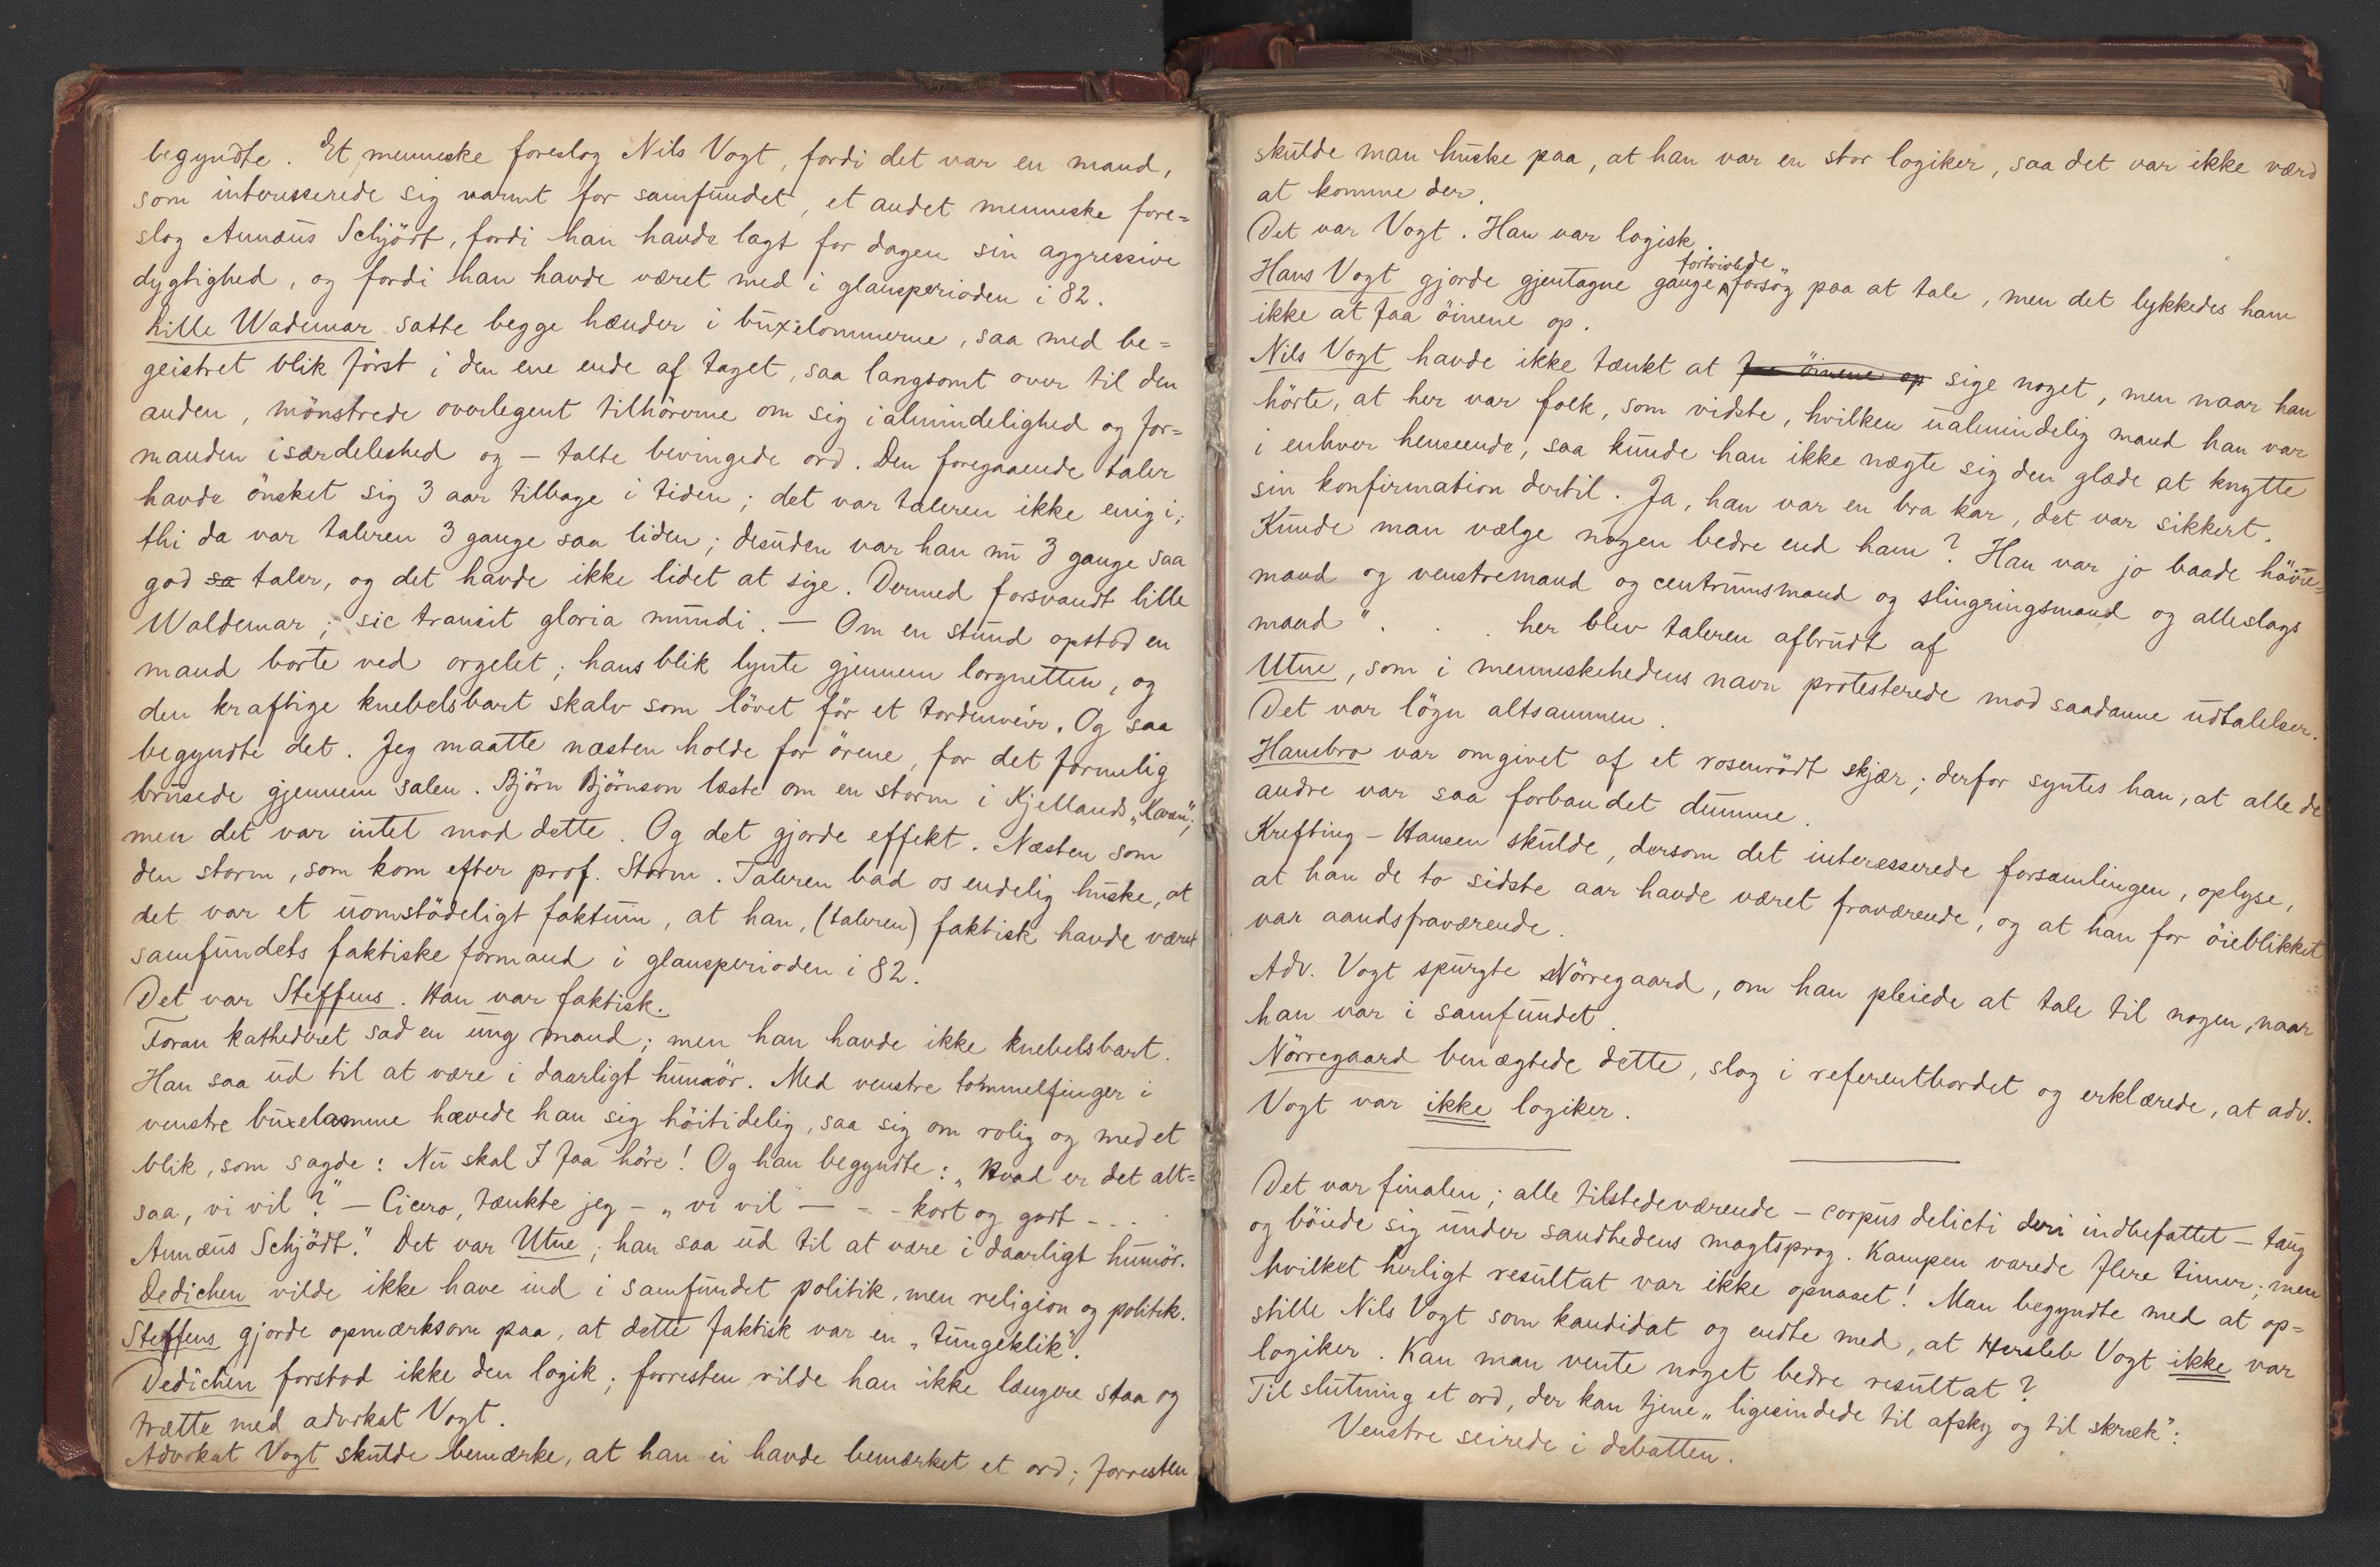 begyndte. Et menneske foreslog Nils Vogt, fordi det var en mand,
som interesserede sig varmt for samfundet, et andet menneske fore=
slog Annæus Schjödt, fordi han havde lagt for dagen sin aggressive
dygtighed, og fordi han havde været med i glansperioden i 82.
Lille Wademar satte begge hænder i buxelommerne, saa med be=
geistret blik först i den ene ende af taget, saa langsomt over til den
anden, mönstrede overlegent tilhörerne om sig i almindelighed og for=
manden isærdeleshed og – talte bevingede ord. Den foregaaende taler
havde önsket sig 3 aar tilbage i tiden; det var taleren ikke enig i;
thi da var taleren 3 gange saa liden; desuden var han nu 3 gange saa
god sa taler, og det havde ikke lidet at sige. Dermed forsvandt lille
Waldemar; sic transit gloria mundi. – Om en stund opstod en
mand borte ved orgelet; hans blik lynte gjennem lorgnetten, og
den kraftige knebelsbart skalv som lövet för et tordenveir. Og saa
begyndte det. Jeg maatte næsten holde for örene, for det formelig
brusede gjennem salen. Björn Björnson læste om en storm i Kjellands „Karen";
men det var intet mod dette. Og det gjorde effekt. Næsten som
den storm, som kom efter prof. Storm. Taleren bad os endelig huske, at
det var et uomstödeligt faktum, at han, (taleren) faktisk havde været
samfundets faktiske formand i glansperioden i 82.
Det var Steffens. Han var faktisk.
Foran kathederet sad en ung mand; men han havde ikke knebelsbart.
Han saa ud til at være i daarligt humör. Med venstre tommelfinger i
venstre buxelomme hævede han sig höitidelig, saa sig om rolig og med et
blik, som sagde: Nu skal I faa höre! Og han begyndte: „Hvad er det alt=
saa, vi vil?" – Cicero, tænkte jeg – „vi vil – – – kort og godt – . . .
Annæus Schjödt." Det var Utne; han saa ud til at være i daarligt humör.
Dedichen vilde ikke have ind i samfundet politik, men religion og politik.
Steffens gjorde opmærksom paa, at dette faktisk var en „tungeklik".
Dedichen forstod ikke den logik; forresten vilde han ikke længere staa og
trætte med advokat Vogt.
Advokat Vogt skulde bemærke, at han ei havde bemærket et ord; forresten
skulde man huske paa, at han var en stor logiker, saa det var ikke værd
at komme der.
Det var Vogt. Han var logisk.
Hans Vogt gjorde gjentagne gange fortvivlede forsög paa at tale, men det lykkedes ham
ikke at faa öinene op.
Nils Vogt havde ikke tænkt at faa öinene op sige noget, men naar han
hörte, at her var folk, som vidste, hvilken ualmindelig mand han var
i enhver henseende, saa kunde han ikke nægte sig den glæde at knytte
sin konfirmation dertil. Ja, han var en bra kar, det var sikkert.
Kunde man vælge nogen bedre end ham? Han var jo baade höire=
mand og venstremand og centrumsmand og slingringsmand og alleslags
mand" . . . her blev taleren afbrudt af
Utne, som i menneskehedens navn protesterede mod saadanne udtalelser.
Det var lögn altsammen.
Hambro var omgivet af et rosenrödt skjær; derfor syntes han, at alle de
andre var saa forbandet dumme.
Krefting–Hansen skulde, dersom det interesserede forsamlingen, oplyse,
at han de to sidste aar havde været fraværende, og at han for öieblikket
var aandsfraværende.
Adv. Vogt spurgte Nörregaard, om han pleiede at tale til nogen, naar
han var i samfundet.
Nörregaard benægtede dette, slog i referentbordet og erklærede, at adv.
Vogt var ikke logiker.
Det var finalen; alle tilstedeværende – corpus delicti deri indbefattet – taug
og böiede sig under sandhedens magtsprog. Kampen varede flere timer; men
hvilket herligt resultat var ikke opnaaet! Man begyndte med at op=
stille Nils Vogt som kandidat og endte med, at Hersleb Vogt ikke var
logiker. Kan man vente noget bedre resultat?
Til slutning et ord, der kan tjene „ligesindede til afsky og til skræk":
Venstre seirede i debatten.